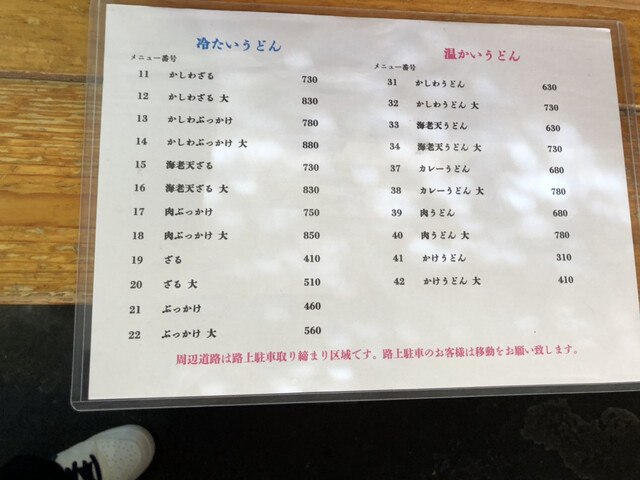 冷たいうどん
メニュー番号
11 かしわざる 730
12 かしわざる 大 830
13 かしわぶっかけ 780
14 かしわぶっかけ 大 880
15 海老天ざる 730
16 海老天ざる 大 830
17 肉ぶっかけ 750
18 肉ぶっかけ 大 850
19 ざる 410
20 ざる 大 510
21 ぶっかけ 460
22 ぶっかけ 大 560
温かいうどん
メニュー番号
31 かしわうどん 630
32 かしわうどん 大 730
33 海老天うどん 630
34 海老天うどん 大 730
37 カレーうどん 680
38 カレーうどん 大 780
39 肉うどん 680
40 肉うどん 大 780
41 かけうどん 310
42 かけうどん 大 410
周辺道路は路上駐車取り締まり区域です。路上駐車のお客様は移動をお願い致します。